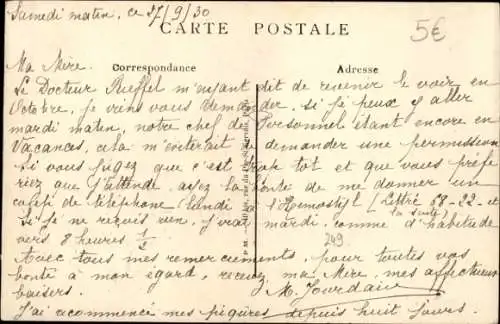 Samedi matin, ce 27/9/30
5€
CARTE POSTALE
Correspondance
Adresse
Ma Mère.
Le Docteur Rueffel m'ayant dit de revenir le voir en
Octobre, je viens vous demander si je peux y aller
mardi matin, notre chef de Personnel étant encore en
Vacances, cela m'éviterait de demander une permission
Si vous jugez que c'est trop tot et que vous préfé
riez que j'attende, ayez la bonté de me donner un
coup de téléphone (lundi à l'Hemostyl (Littré 68-22- et
la suite)
Si je ne reçois rien, j'irai mardi comme d'habitude
vers 8 heures 1/2
249
Avec tous mes remerciements, pour toutes vos
bonté à mon égard, recevez, ma Mère, mes affectueux
baisers.
M. Jourdain
J'ai recommencé mes piqûres depuis huit jours.